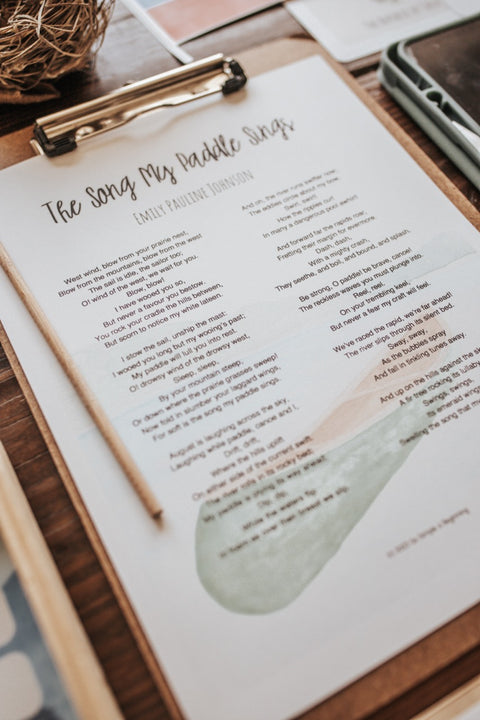 The Song My Paddle Sings
EMILY PAULINE JOHNSON
West wind, blow from your prairie nest,
Blow from the mountains, blow from the west
The sail is idle, the sailor too;
O! wind of the west, we wait for you.
Blow, blow!
I have wooed you so,
But never a favour you bestow.
You rock your cradle the hills between,
But scorn to notice my white lateen.
I stow the sail, unship the mast:
I wooed you long, but my wooing's past;
My paddle will lull you into rest.
O! drowsy wind of the drowsy west,
Sleep, sleep,
By your mountain steep,
Or down where the prairie grasses sweep!
Now fold in slumber your laggard wings,
For soft is the song my paddle sings.
August is laughing across the sky,
Laughing while paddle, canoe and I,
Drift, drift,
Where the hills uplift
On either side of the current swift.
The river rolls in its rocky bed;
My paddle is plying its way ahead;
Dip, dip,
While the waters flip
In foam as over their breast we slip.
And oh, the river runs swifter now;
The eddies circle about my bow.
Swirl, swirl!
How the ripples curl
In many a dangerous pool awhirl!
And forward far the rapids roar,
Fretting their margin for evermore.
Dash, dash,
With a mighty crash,
They seethe, and boil, and bound, and splash.
Be strong, O paddle! be brave, canoe!
The reckless waves you must plunge into.
Reel, reel,
On your trembling keel,
But never a fear my craft will feel.
We've raced the rapid, we're far ahead!
The river slips through its silent bed.
Sway, sway,
As the bubbles spray
And fall in tinkling tunes away.
And up on the hills against the sk
A fir tree rocking its lullab
Swings, swings,
Its emerald wings
Swelling the song that m